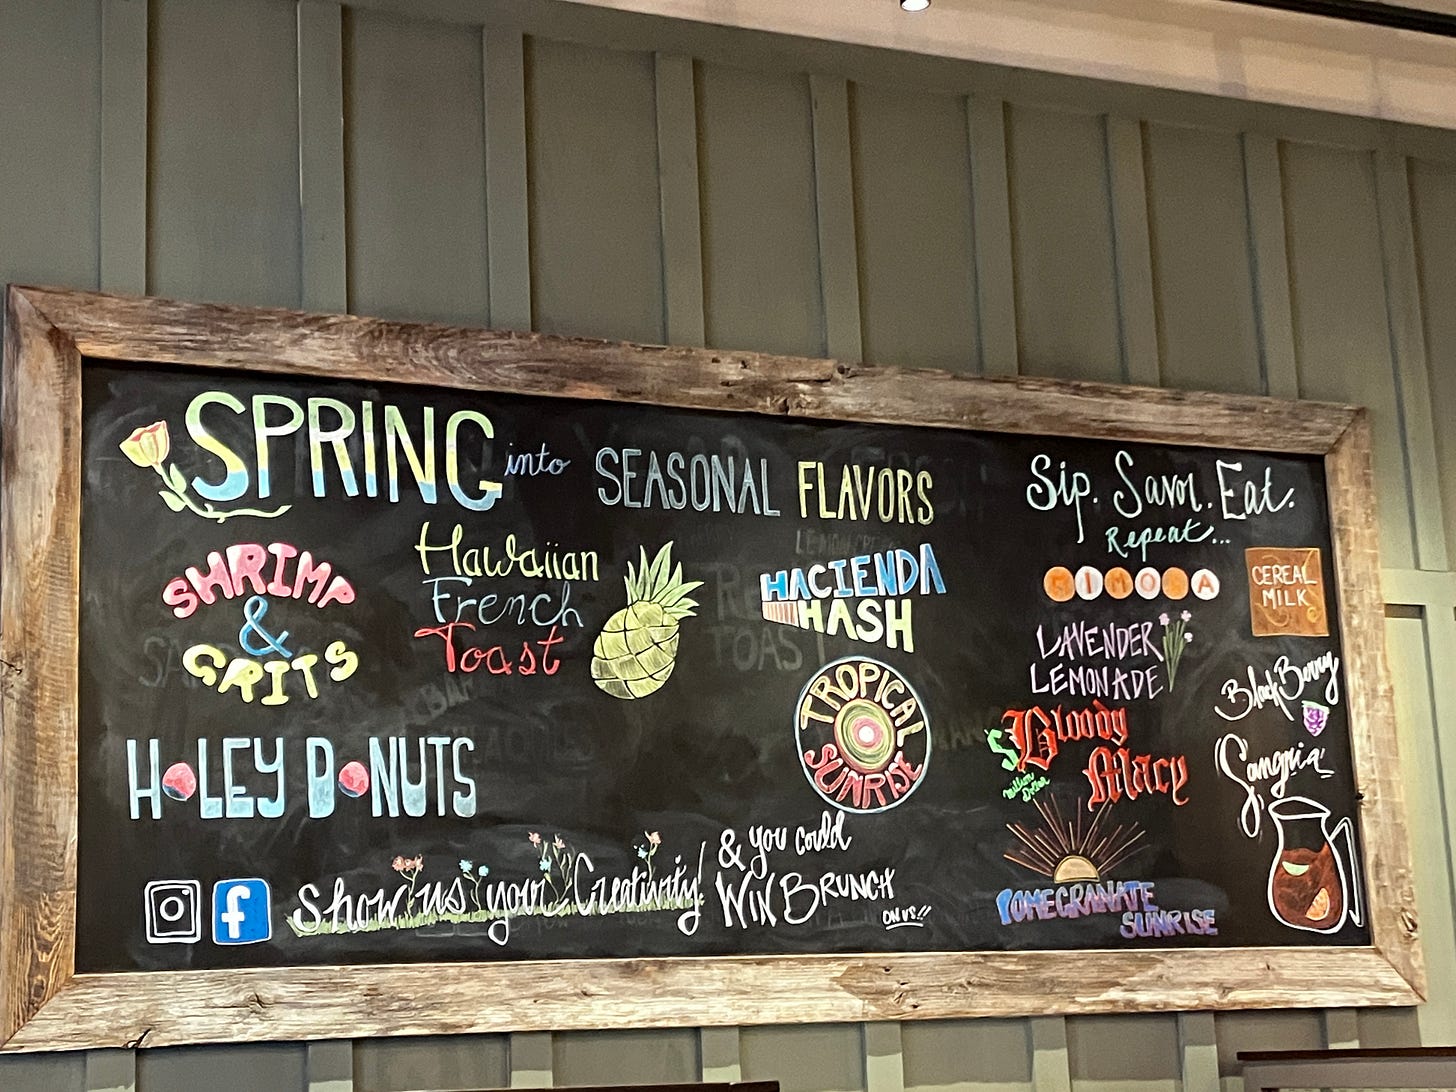 SPRING into SEASONAL FLAVORS
SHRIMP
&
GRITS
Hawaiian
French
Toast
HACIENDA
HASH
TROPICAL
SUNRISE
HOLEY DONUTS
Show us your Creativity!
& you could
WIN BRUNCH
ON US!!
Sip. Savor. Eat.
Repeat...
MIMOSA
CEREAL
MILK
LAVENDER
LEMONADE
BlackBerry
Sangria
$
Million
Dollar
Bloody
Mary
POMEGRANATE
SUNRISE
f
TOAST